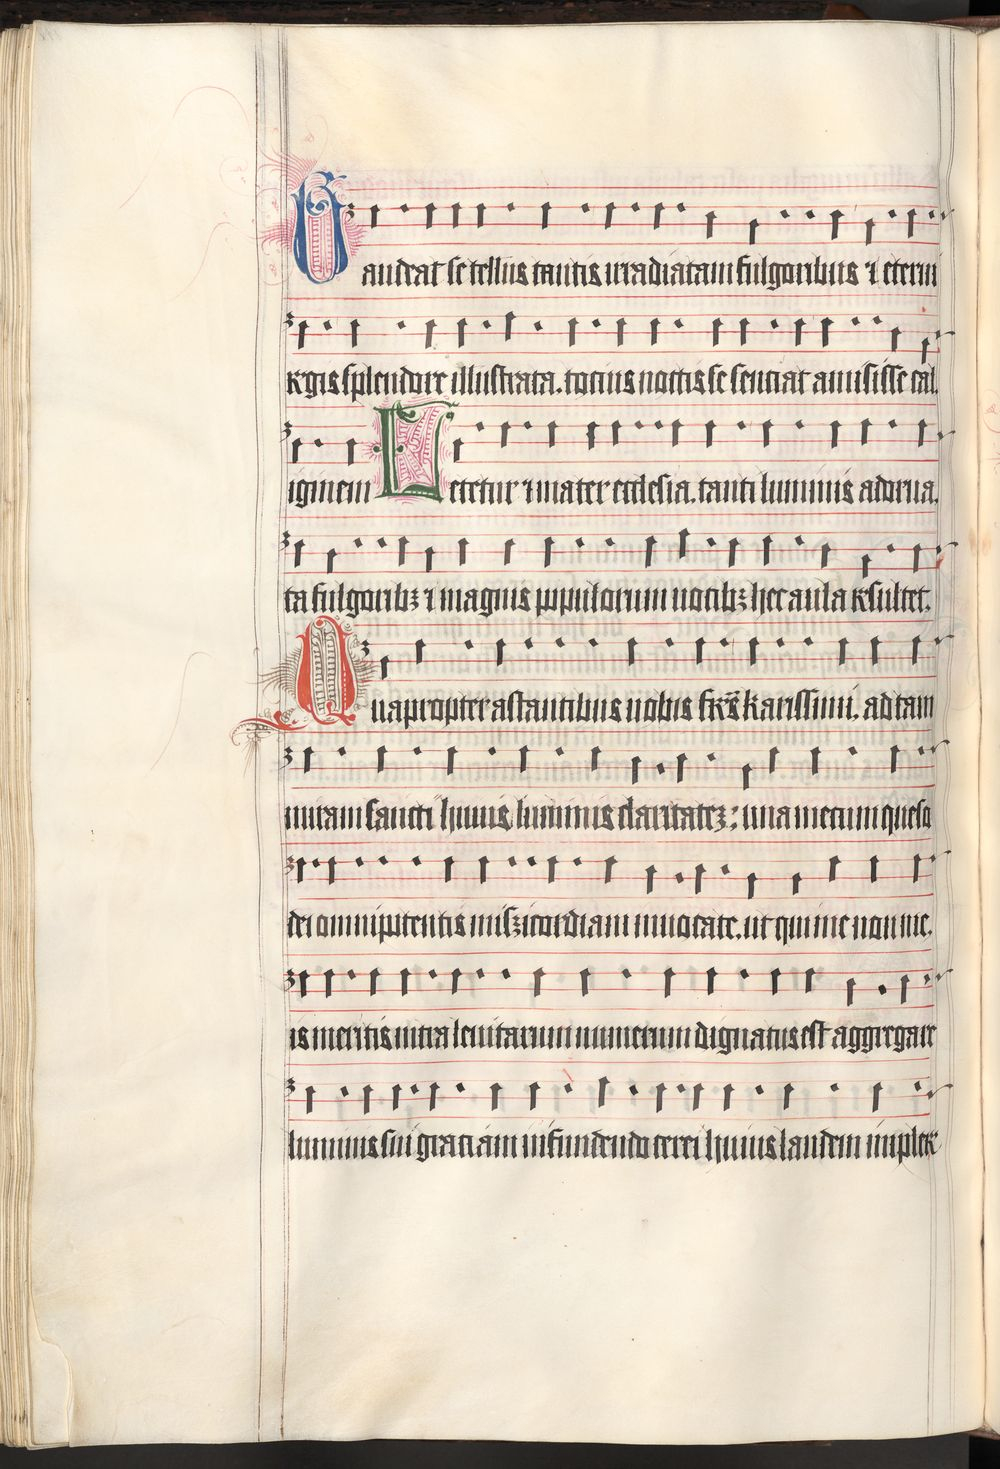 Gaudeat se tellus tantis irradiatam fulgoribus ⁊ eterni
regis splendore illustrata. tocius noctis se senciat amisisse cal
iginem Letetur ⁊ mater ecclesia. tanti luminis adorna
ta fulgoribꝫ ⁊ magnis populorum vocibꝫ hec aula resultet.
Quapropter astantibus vobis frēs karissimi. ad tam
miram sancti huius luminis claritatēꝫ: una mecum queso
dei omnipotentis misꝫicordiam invocate. ut qui me non me
is meritis intra levitarum numerum dignatus est aggregare
luminis sui graciam infundendo cerei huius laudem implere